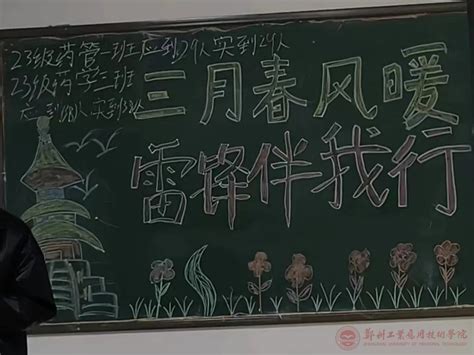 23级药管一班应到29人实到29人
23级药学三班
应到48人实到38人
三月春风暖
雷锋伴我行
郑州工业应用技术学院